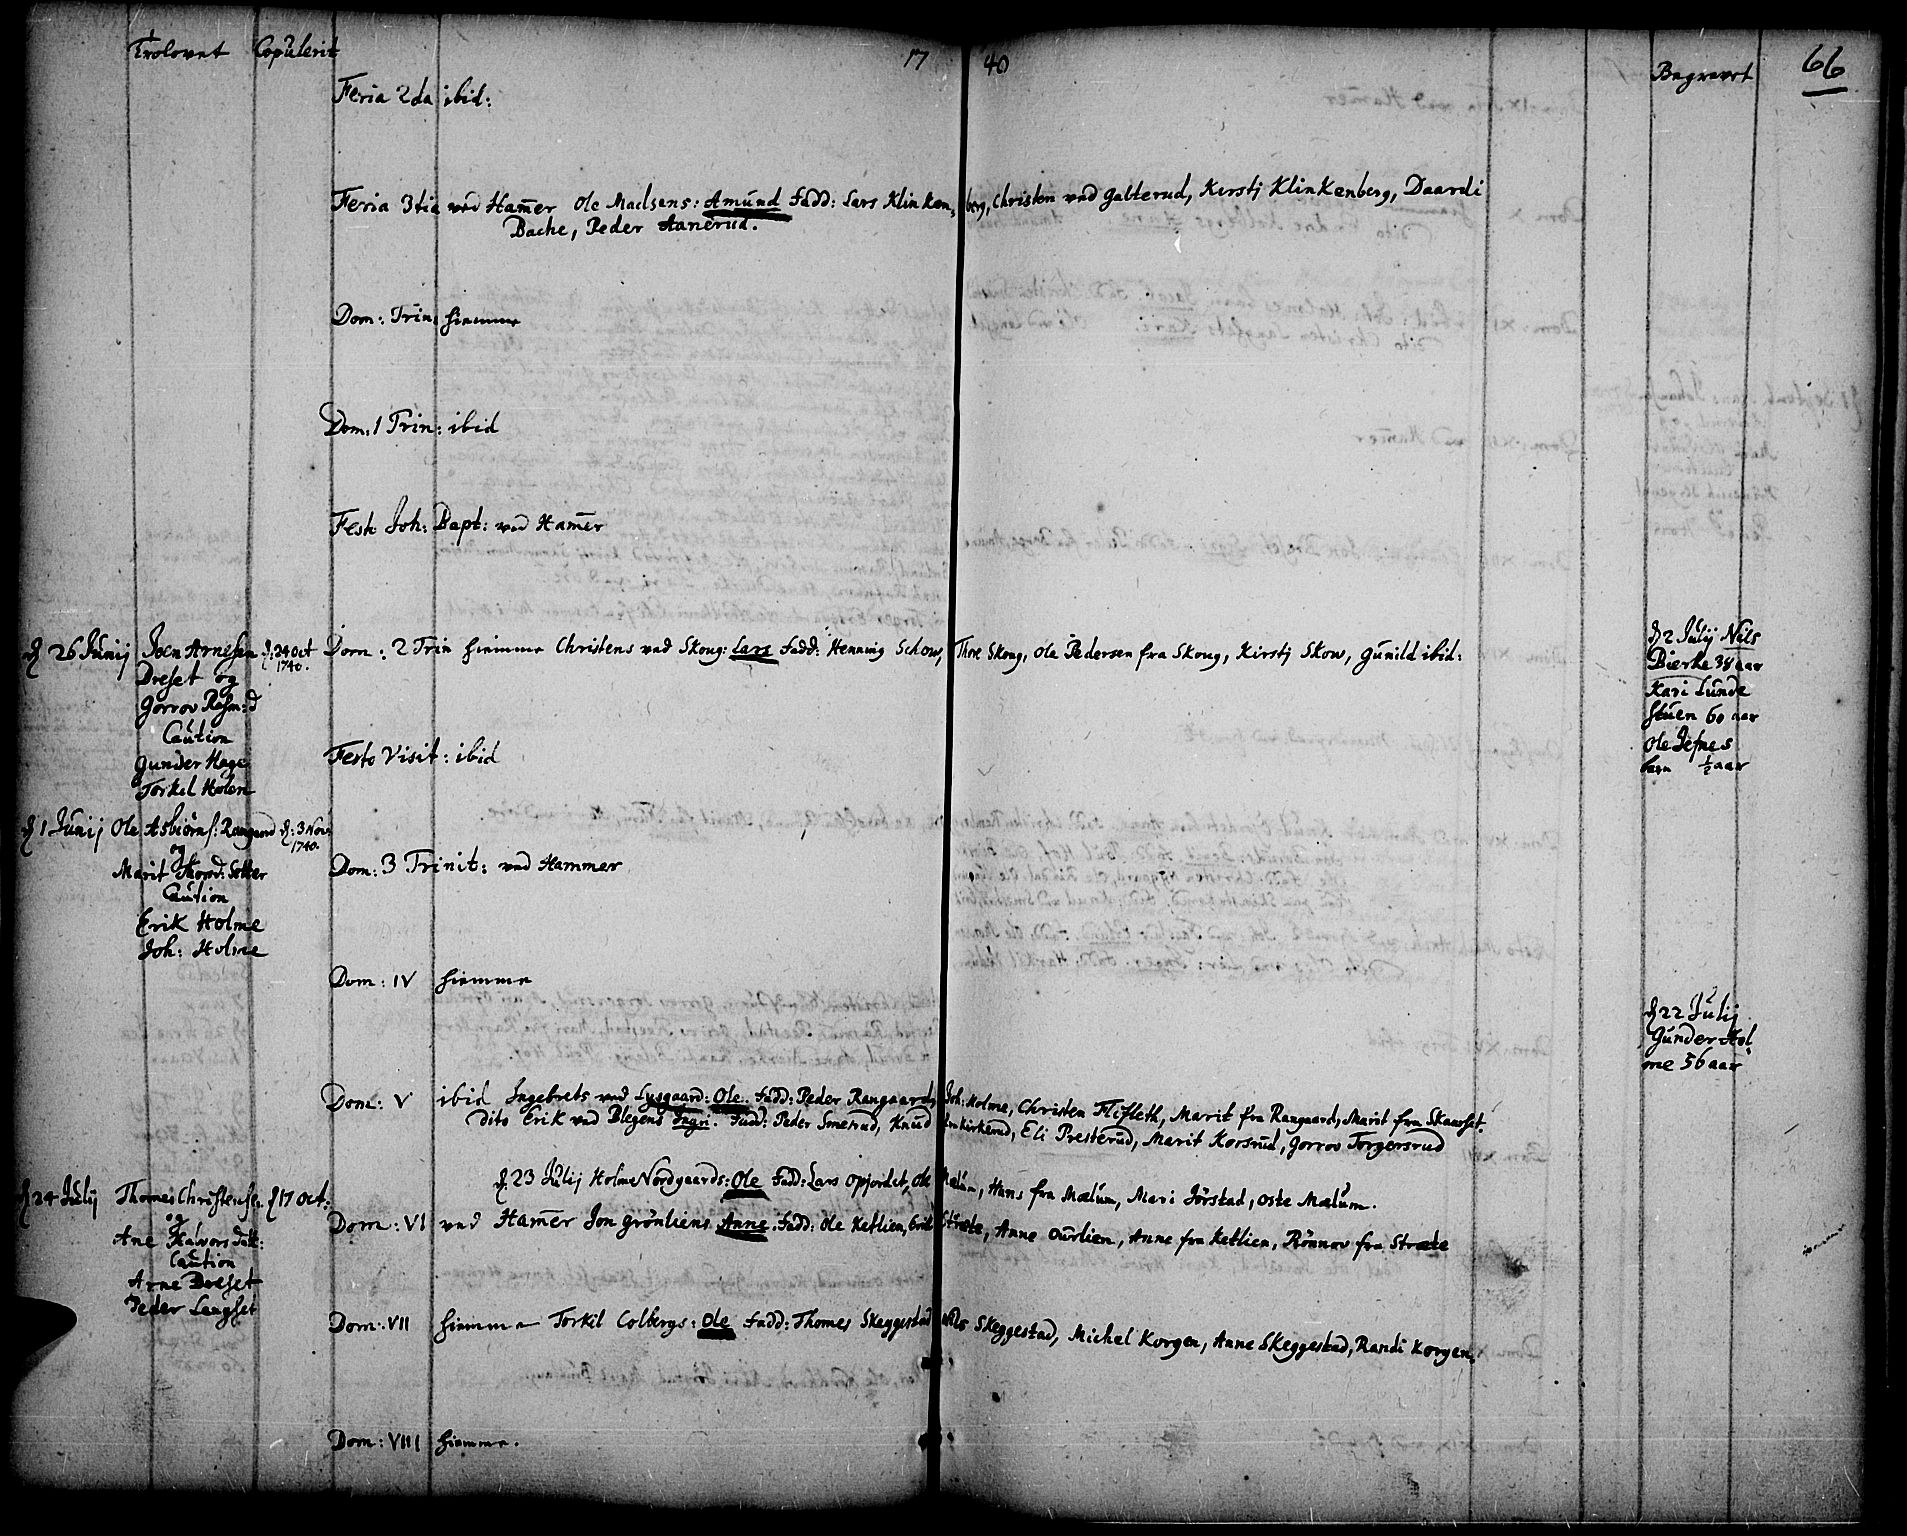 Trolovet Copulerit 17 40 Begravet 66
Feria 2da ibid:
Feria 3tia ved Ham̄er Ole Madsens: Amund Fadd: Lars Klinken, berg, Christen ved Galterud, Kerstj Klinkenberg, Daardi
Bache, Peder Aanerud.
Dom: Trin: hiemme
Dom: 1 Trin: ibid
Fest: Joh: Bapt: ved Ham̄er
Dom: 2 Trin hiemme Christens ved Skoug: Lars Fadd: Henning Schow, Thore Skoug, Ole Pedersen fra Skoug, Kirstj Skow, Gunild ibid:
Festo Visit: ibid
Dom: 3 Trinit: ved Hammer
Dom: IV hiemme
Dom: V ibid Ingebrets ved Lysgaard: Ole. Fadd: Peder Rangaard, Joh: Holme, Christen Flifleth, Marit fra Rangaard, Marit fra Skaarset.
Dito Erik ved Blegens Ingri. Fadd: Peder Smerud, Knud Enkirkerud, Eli Presterud, Marit Korsrud, Jorrov Torgersrud
d 23 Julij Holme Nordgaards: Ole Fadd: Lars Opjordet, Ole Mælum, Hans fra Mælum, Mari Jörstad, Oste Mælum.
Dom: VI ved Ham̄er Jon Grönliens Anne. Fadd: Ole Ketlien, Erik Stræte, Anne Ourlien, Anne fra Ketlien, Rönnov fra Stræte
Dom: VII hiemme Torkil Colbergs: Ole Fadd: Thomes Skeggestad Nils Skeggestad, Michel Korgen, Anne Skeggestad, Randi Korgen.
Dom: VIII hiemme.
d 26 Junij Joen Arnesen d: 24 Oct
1740.
Dreset og
Gorrov Rasm:d
Caution
Gunder Hage
Torkel Holen
d 1 Junij Ole Asbiörns: Rangaard d: 3 Nov:
1740.
og
Marit Thord: Setter
Caution
Erik Holme
Joh: Holme
d 24 Julij Thomes Christensen d 17 Oct:
og
Ane Halvors datt:
Caution
Arne Dreset
Peder Langset
d 2 Julij Nils
Bierke 38 aar
Kari Lunde
stuen 60 aar
Ole Jefnes
barn ½ aar
d 22 Julij
Gunder Hol
me 56 aar